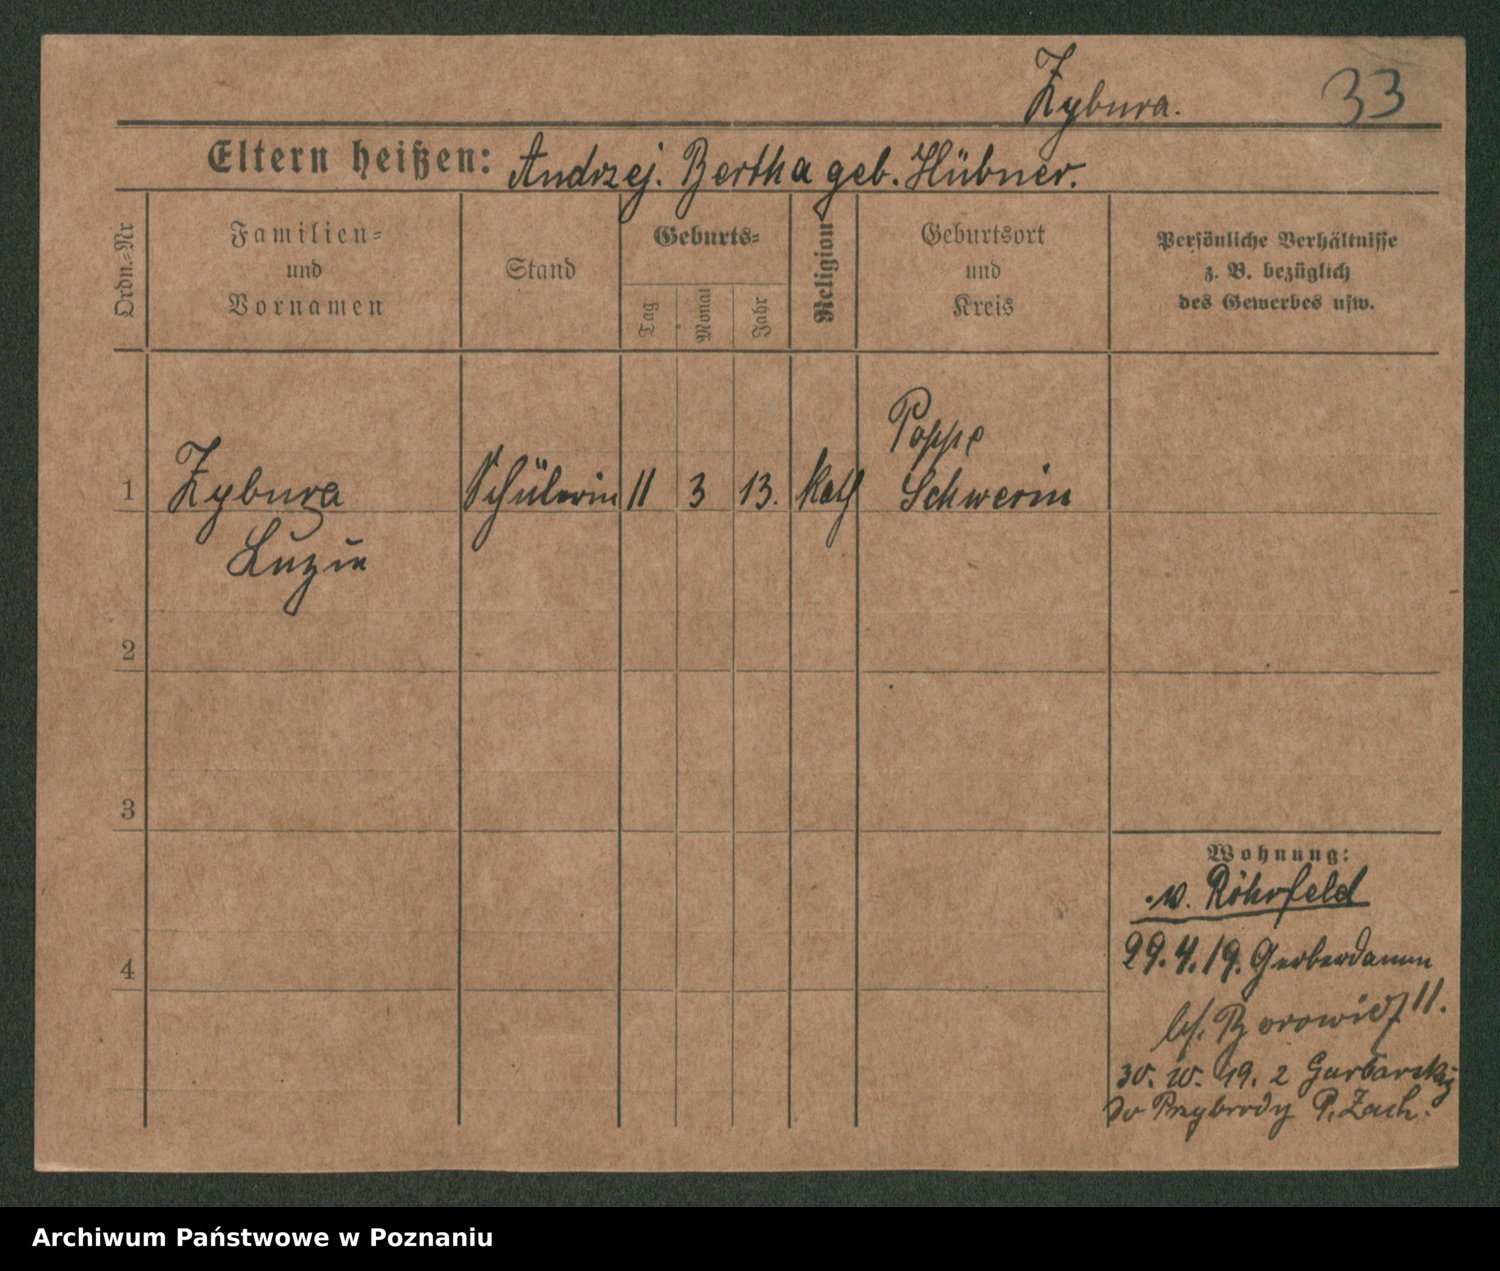 Zybura. 33
Eltern heißen: Andrzej. Bertha geb. Hübner.
Ordn.=Nr
Familien=
und
Vornamen
Stand
Geburts=
Tag
Monat
Jahr
Religion
Geburtsort
und
Kreis
Persönliche Verhältnisse
z. B. bezüglich
des Gewerbes usw.
Poppe
1 Zybura Schülerin 11 3 13. kath Schwerin
Luzie
2
3
4
Wohnung:
v. Röhrfeld
29.4.19. Gerberdamm
bei. Borowicz 11.
30. 10. 19. 2 Garbarskiej
do Przybrody P. Zach.
Archiwum Państwowe w Poznaniu